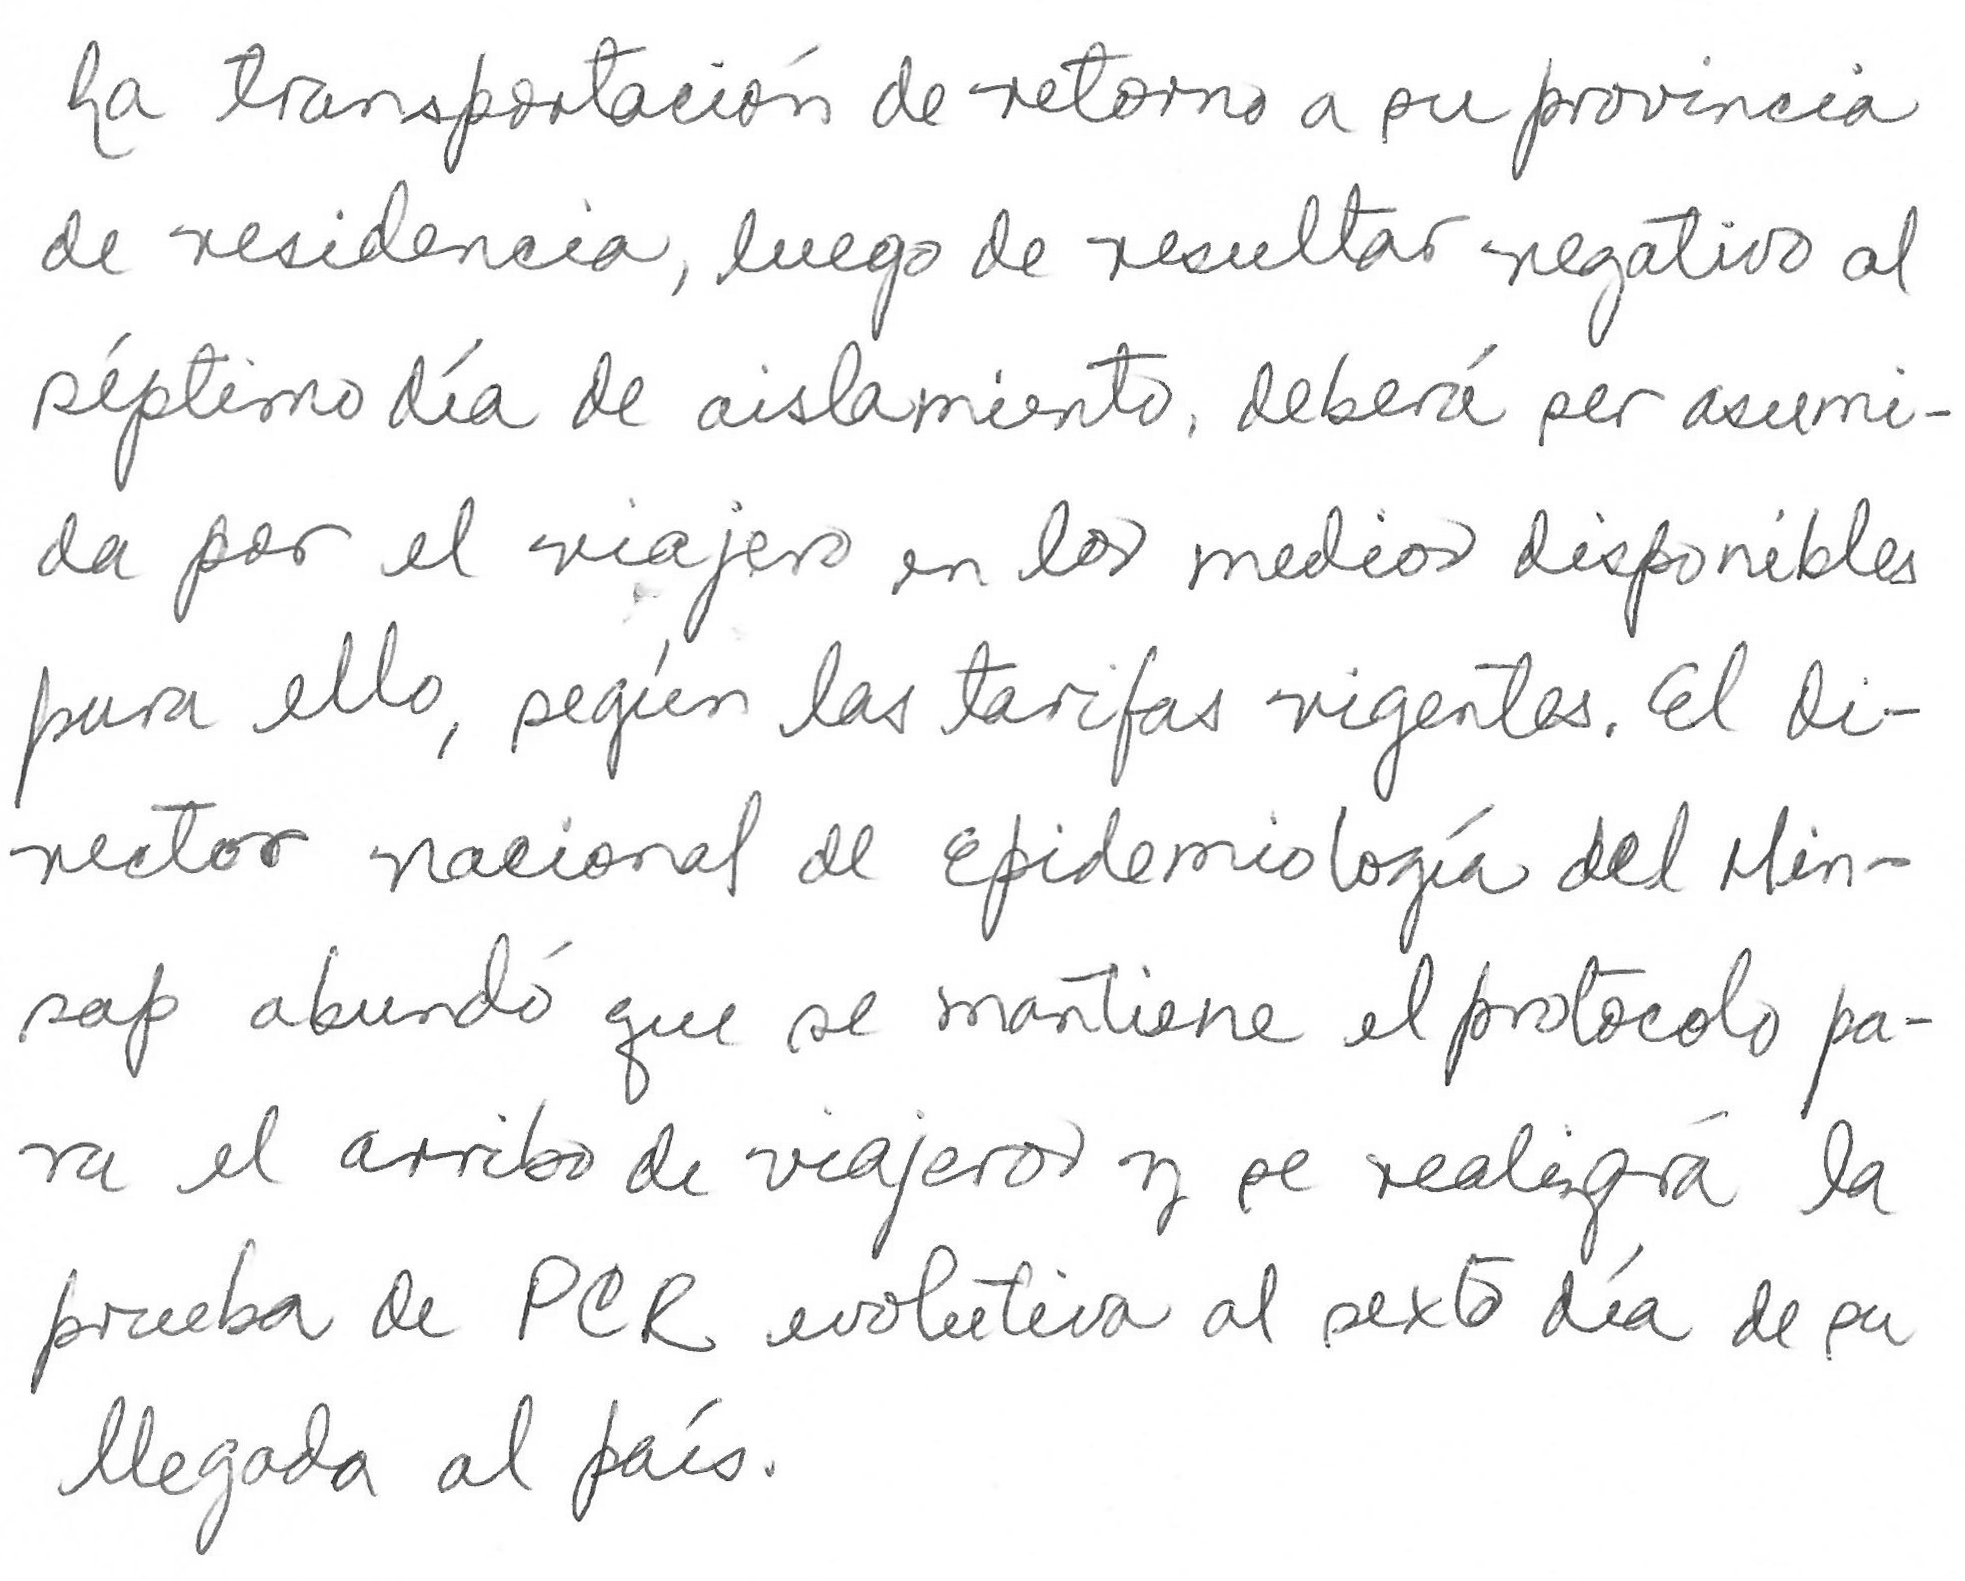 La transportación de retorno a su provincia
de residencia, luego de resultar negativo al
séptimo día de aislamiento, deberá ser asumi-
da por el viajero en los medios disponibles
para ello, según las tarifas vigentes. El di-
rector nacional de Epidemiología del Min-
sap abundó que se mantiene el protocolo pa-
ra el arribo de viajeros y se realizará la
prueba de PCR evolutiva al sexto día de su
llegada al país.